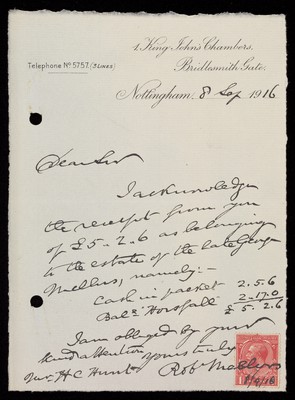 1 King John's Chambers,
Bridlesmith Gate,
Telephone No 5757. (3 LINES)
Nottingham, 8 Sep 1916
Dear Sir
I acknowledge
the receipt from you
of £5-2-6 as belonging
to the estate of the late George
Mellers, namely:-
Cash in packet 2.5.6
Bale Horsfall 2.17.0
£5.2.6
I am obliged by your
kind attention
yours truly
Mr H C Hunt Robt Mellors
8/9/16